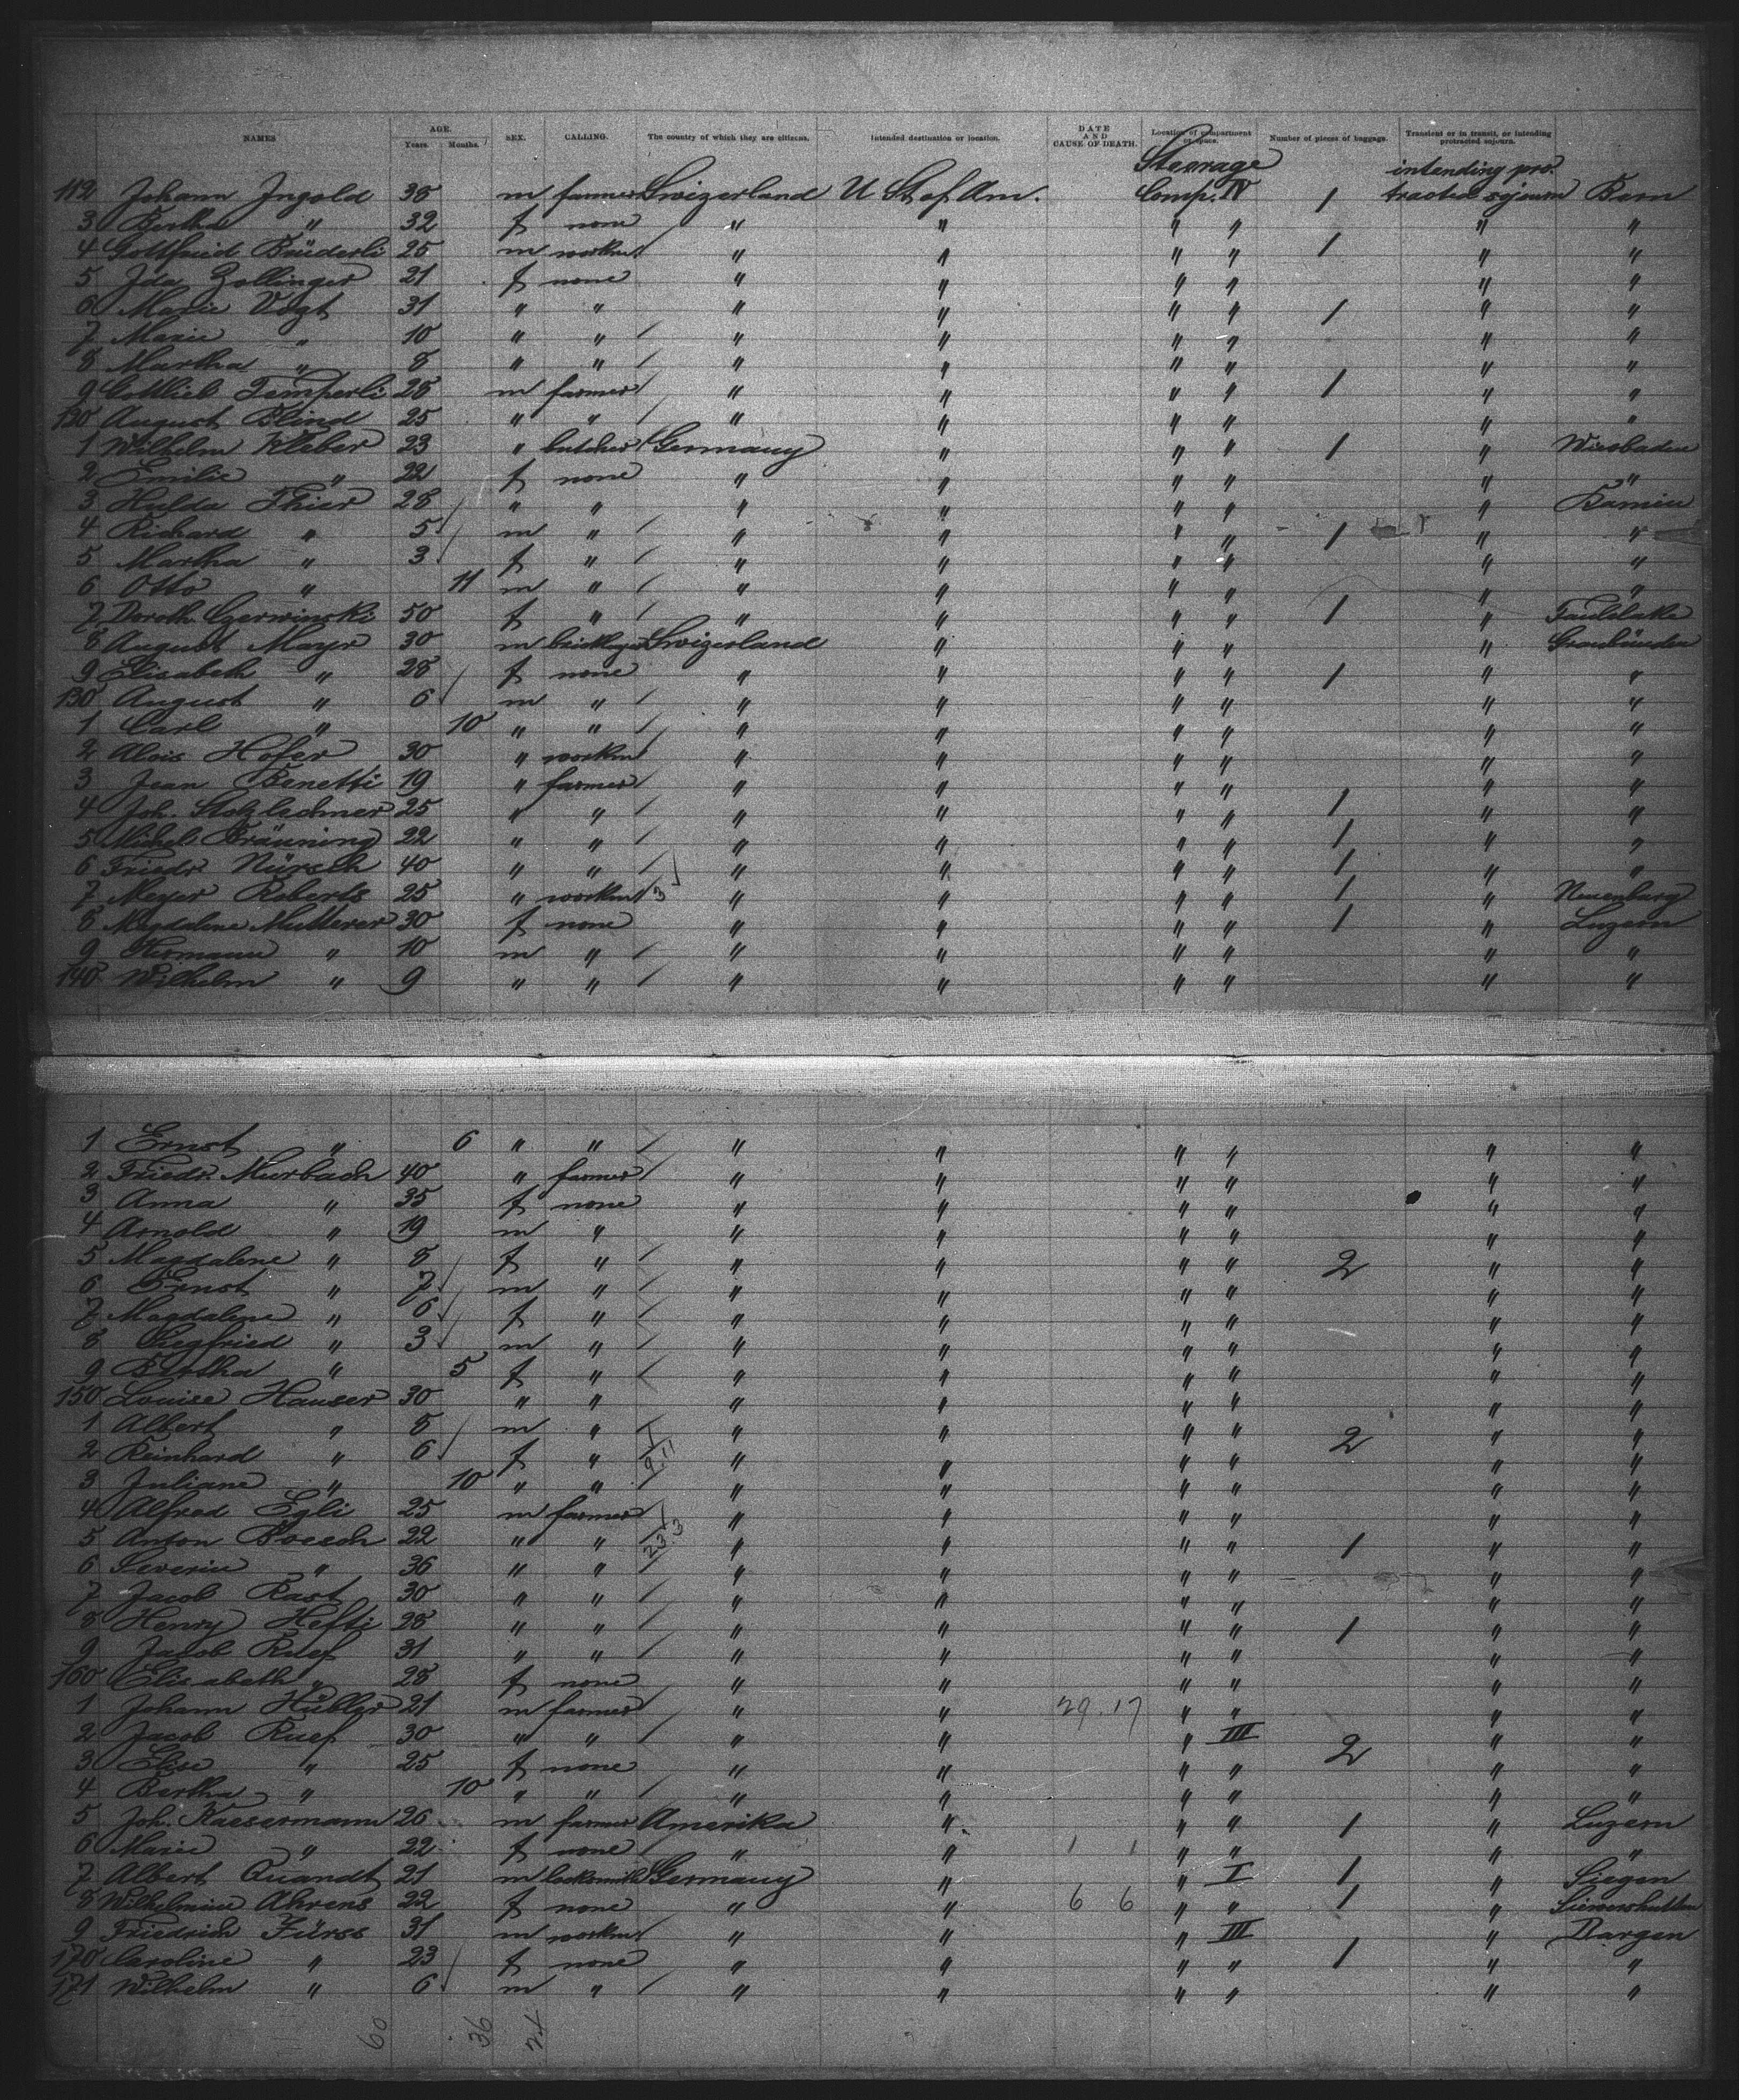 NAMES AGE. Years. Months. SEX. CALLING. The country of which they are citizens. Intended destination or location. DATE AND CAUSE OF DEATH. Location of compartment or space. Number of pieces of baggage. Transient or in transit, or intending protracted sojourn.
Steerage intending pro-
112 Johann Ingold 38 m farmer Swizerland U St of Am. Comp. IV 1 tracted sojourn Bern
3 Bertha " 32 f none " " " " " "
4 Gottfried Brüderli 25 m workm " " " " 1 " "
5 Ida Zollinger 21 f none " " " " " "
6 Marie Vogt 31 " " " " " " 1 " "
7 Marie " 10 " " " " " " " "
8 Martha " 8 " " " " " " " "
9 Gottlieb Temperli 28 m farmer " " " " 1 " "
120 August Blind 25 " " " " " " " "
1 Wilhelm Kleber 23 " butcher Germany " " " 1 " Wiesbaden
2 Emilie " 22 f none " " " " " "
3 Hulda Thier 28 " " " " " " " Kamin
4 Richard " 5 m " " " " " 1 " "
5 Martha " 3 f " " " " " " "
6 Otto " 11 m " " " " " " "
7 Doroth. Czerwinski 50 f " " " " " 1 "
8 August Mayr 30 m bricklayer Swizerland " " " " Graubünden
9 Elisabeth " 28 f none " " " " 1 " "
130 August " 6 m " " " " " " "
1 Carl " 10 " " " " " " " "
2 Alois Hofer 30 " workm " " " " " "
3 Jean Benetti 19 " farmer " " " " " "
4 Joh. Stolzlechner 25 " " " " " " 1 " "
5 Michel Bräuning 22 " " " " " " 1 " "
6 Friedr. Nürsch 40 " " " " " " 1 " "
7 Meyer Roberts 25 " workm 3 " " " " 1 " Neuenburg
8 Magdalene Mutterer 30 f none " " " " 1 " Luzern
9 Hermann " 10 m " " " " " " "
140 Wilhelm " 9 " " " " " " " "
1 Ernst " 6 " " " " " " " "
2 Friedr. Murbach 40 " farmer " " " " " "
3 Anna " 35 f none " " " " " "
4 Arnold " 19 m " " " " " " "
5 Magdalene " 8 f " " " " " 2 " "
6 Ernst " 7 m " " " " " " "
7 Magdalene " 6 f " " " " " " "
8 Siegfried " 3 m " " " " " " "
9 Bertha " 5 f " " " " " " "
150 Louise Hauser 30 " " " " " " " "
1 Albert " 8 m " " " " " 2 " "
2 Reinhard " 6 f " 9.11 " " " " " "
3 Juliane " 10 " " " " " " " "
4 Alfred Egli 25 m farmer " " " " " "
5 Anton Boesch 22 " " 23.3 " " " " 1 " "
6 Severin " 36 " " " " " " " "
7 Jacob Rast 30 " " " " " " " "
8 Henry Hefti 28 " " " " " " 1 " "
9 Jacob Ruef 31 " " " " " " " "
160 Elisabeth " 28 f none " " " " " "
1 Johann Hubler 21 m farmer " " 29.17 " " " "
2 Jacob Ruef 30 " " " " " III 2 " "
3 Elise " 25 f none " " " " " "
4 Bertha " 10 " " " " " " " "
5 Joh. Kaesermann 26 m farmer Amerika " " " 1 " Luzern
6 Marie " 22 f none " " 1 1 " " " "
7 Albert Quandt 21 m locksmith Germany " " I 1 " Siegen
8 Wilhelmine Ahrens 22 f none " " 6 6 " " 1 " Sievershutten
9 Friedrich Fürss 31 m workm " " " III " Dargen
170 Caroline " 23 f none " " " " 1 " "
171 Wilhelm " 6 m " " " " " " "
60 36 24